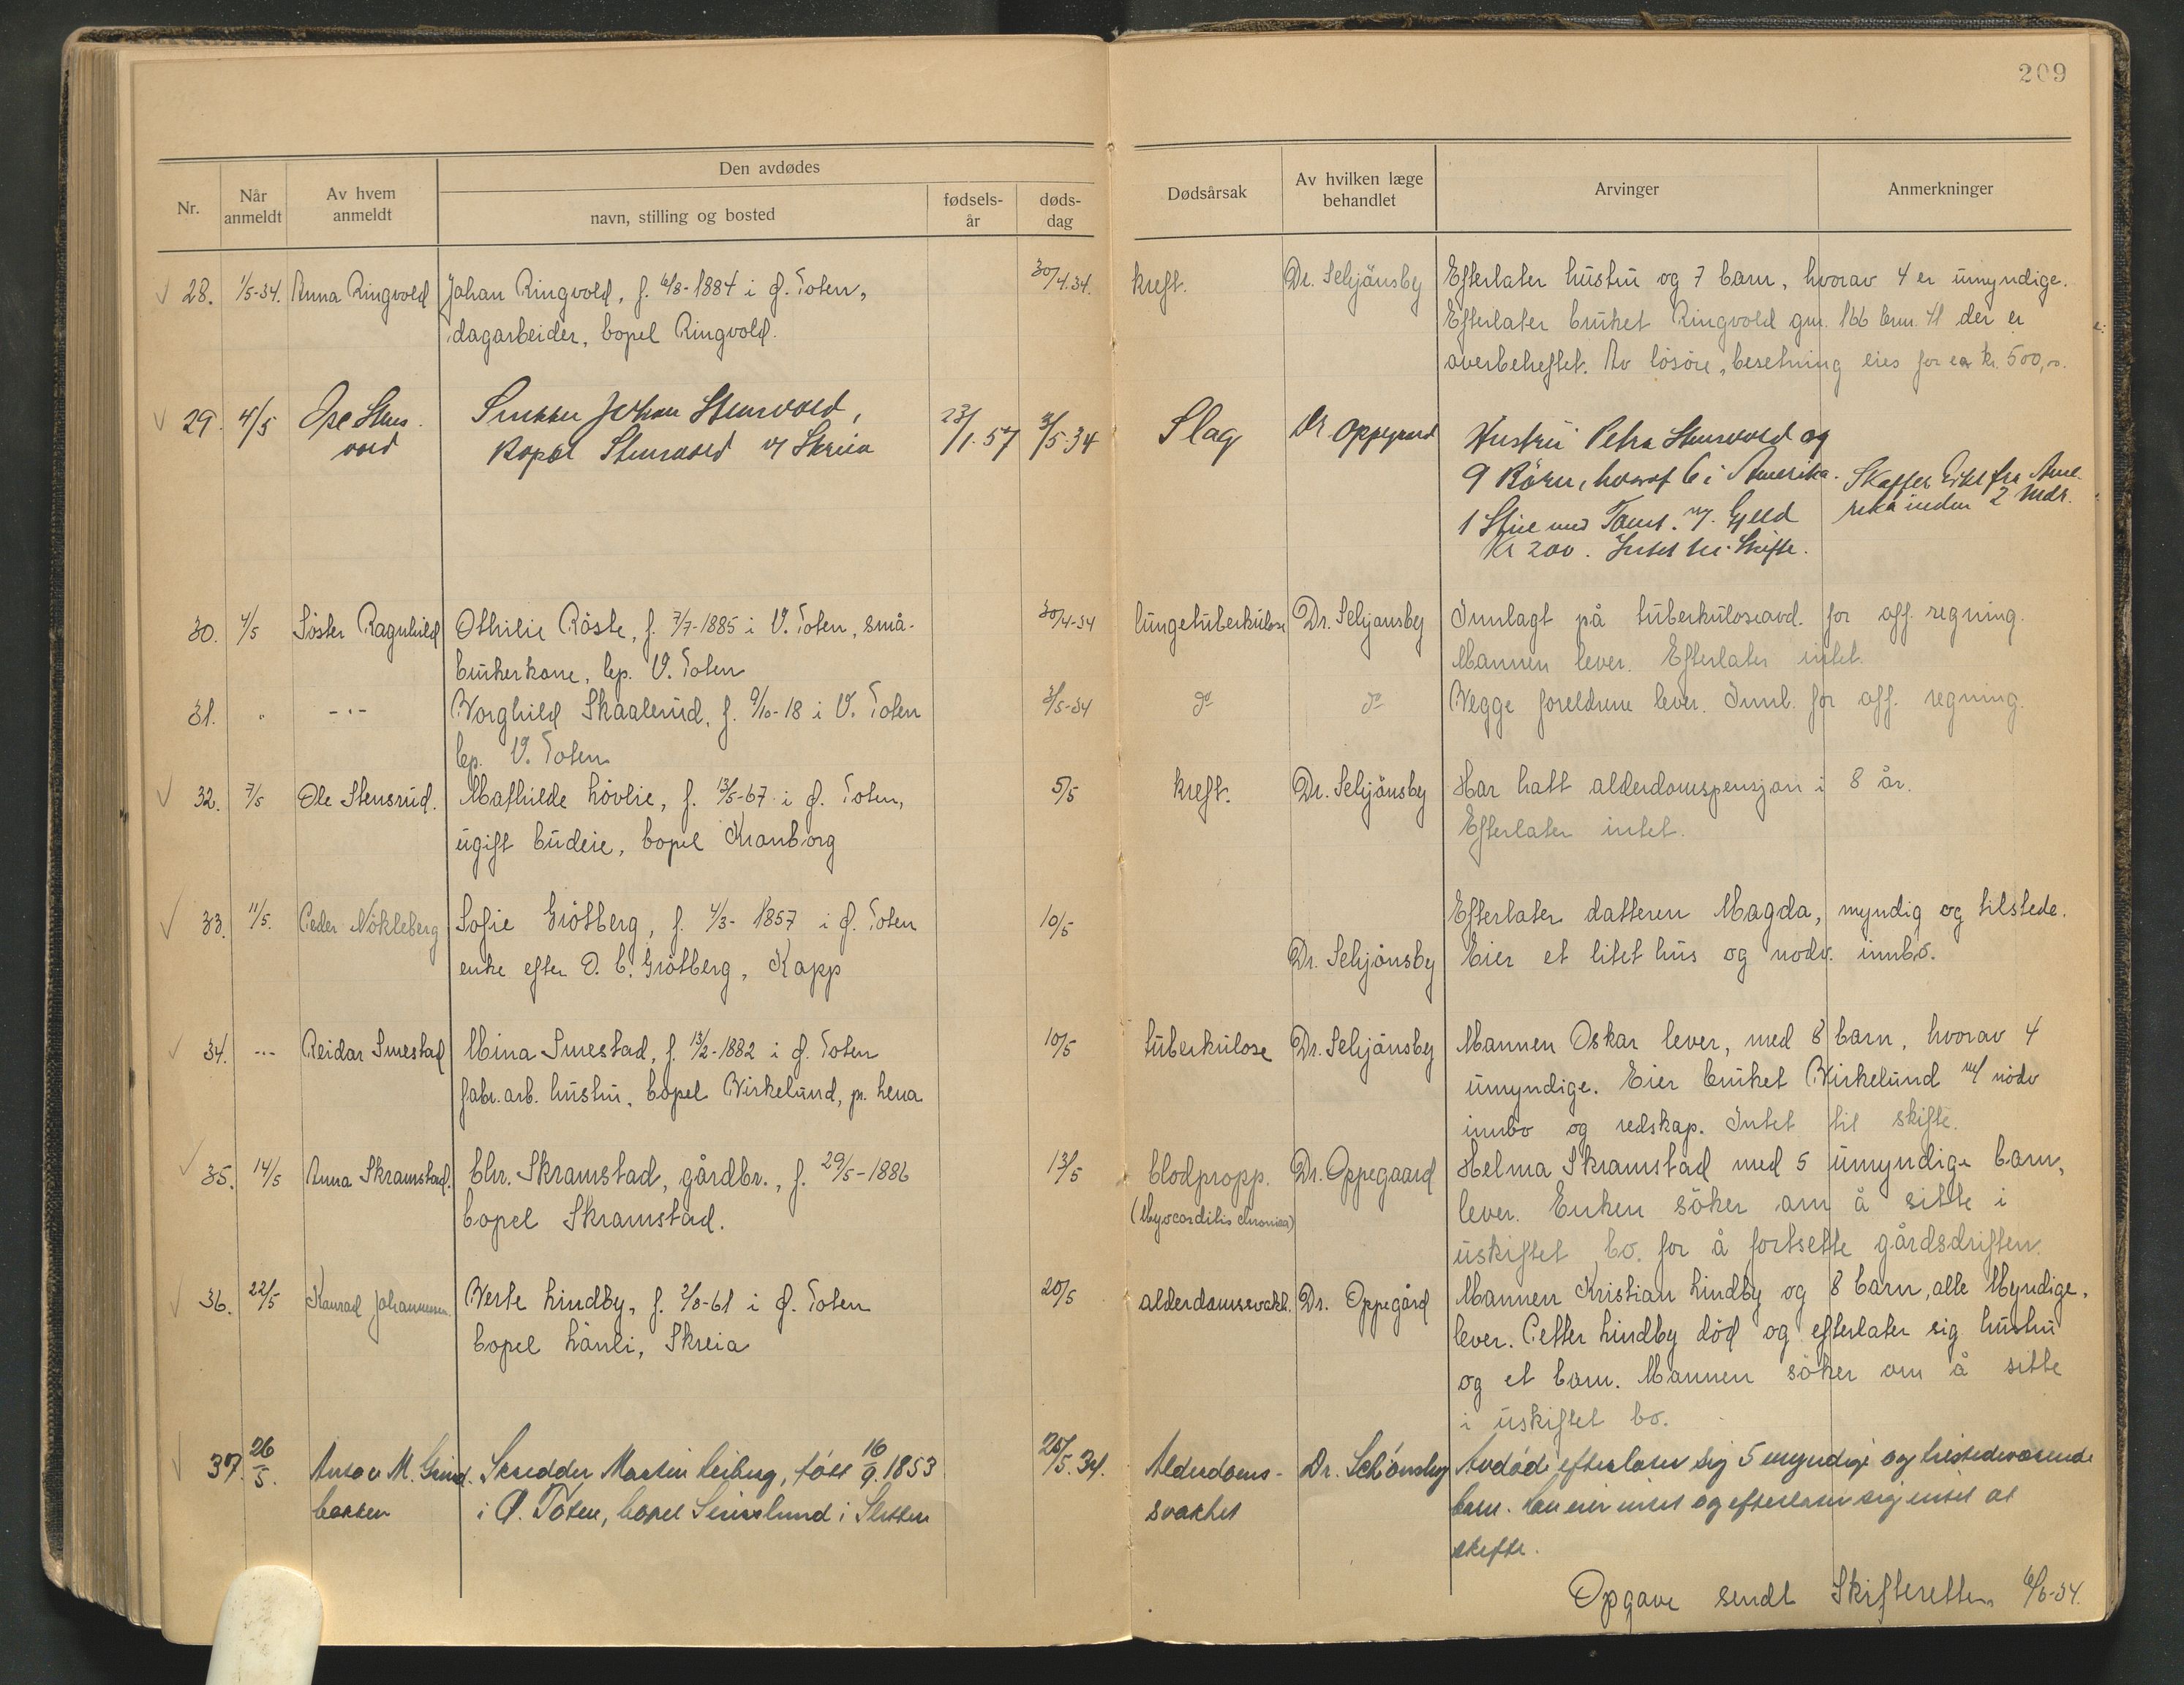 209
Den avdødes
Nr. Når anmeldt Av hvem anmeldt navn, stilling og bosted fødsels-år døds-dag Dødsårsak Av hvilken læge behandlet Arvinger Anmerkninger
28. 1/5-34. Anna Ringvold Johan Ringvold, f. 6/8-1884 i Ø. Toten, 30/4.34. kreft. Dr. Sehjönsby Efterlater hustru og 7 barn, hvorav 4 er umyndige.
dagarbeider, bopel Ringvold. Efterlater bruket Ringvold gnr. 166 brnr. 41 der er
overbeheftet. Av lösöre, besetning eies for ca kr. 500,00.
29. 4/5 Ole Stens- Snekker Johan Stensvold, 23/1.57 3/5.34 Slag Dr. Oppegaard Hustru Petra Stensvold og
vold Bopæl Stensvold v/ Skreia 9 Börn, hvoraf 6 i Amerika. Skaffer Erkl fra Ame-
1 Stue med Tomt. m/ Gjeld rika inden 2 Mdr.
Kr 200. Intet til Skifte.
30. 4/5 Söster Ragnhild Othilie Röste, f. 7/7-1885 i V. Toten, små- 30/4-34 lungetuberkulose Dr. Sehjönsby Innlagt på tuberkuloseavd. for off. regning.
brukerkone, bep. V. Toten Mannen lever. Efterlater intet.
31. " -"- Borghild Skaalerud, f. 9/10-18 i V. Toten 3/5-34 do do Begge foreldrene lever. Innl. for off. regning.
bep. V. Toten
32. 7/5 Ole Stensrud. Mathilde Hövlie, f. 13/5-67 i Ø. Toten, 5/5 kreft. Dr. Sehjönsby Har hatt alderdomspensjon i 8 år.
ugift budeie, bopel Kronborg Efterlater intet.
33. 11/5. Peder Nökleberg Sofie Grötberg, f. 4/3-1857 i Ø. Toten 10/5 Efterlater datteren Magda, myndig og tilstede.
enke efter O. C. Grötberg, Kapp Dr. Sehjönsby Eier et litet hus og nödv. innbo.
34. -"- Reidar Smestad Mina Smestad, f. 13/2-1882 i Ø. Toten 10/5 tuberkulose Dr. Sehjönsby Mannen Oskar lever, med 8 barn, hvorav 4
fabr.arb. hustru, bopel Birkelund, pr. Lena umyndige. Eier bruket Birkelund m/ nödv
innbo og redskap. Intet til skifte.
35. 14/5 Anna Skramstad. Chr. Skramstad, gårdbr., f. 29/5-1886 13/5 blodpropp. Dr. Oppegaard Helma Skramstad med 5 umyndige barn,
bopel Skramstad. (Myocarditis chronica) lever. Enken söker om å sitte i
uskiftet bo. for å fortsette gårdsdriften.
36. 22/5 Konrad Johannesen. Berte Lindby, f. 2/8-61 i Ø. Toten 20/5 alderdomssvakh. Dr. Oppegård Mannen Kristian Lindby og 8 barn, alle Myndige,
bopel Lånli, Skreia lever. Petter Lindby död og efterlater sig hustru
og et barn. Mannen söker om å sitte
i uskiftet bo.
37. 26/5. Anton M. Grind- Skredder Martin Seiberg, född 16/9.1853 25/5.34. Alderdoms- Dr. Schönsby Avdöde efterlater sig 5 myndige og tilstedeværende
bakken i Ø. Toten, bopel i Sletten svakhet barn. Han eier intet og efterlater sig intet at
skifte.
Opgave sendt Skifteretten 6/6-34.